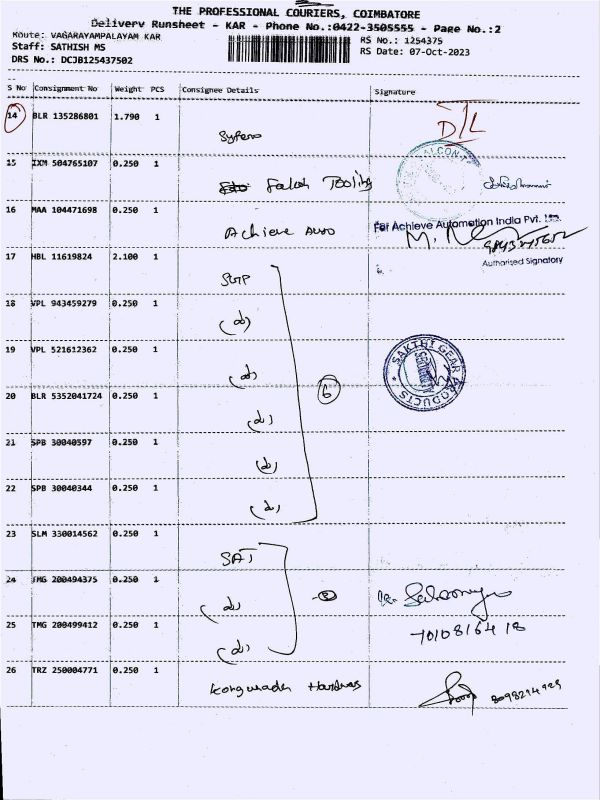 THE PROFESSIONAL COURIERS, COIMBATORE
Delivery Runsheet - KAR - Phone No.:0422-3505555 - Page No.:2
Route: VAGARAYAMPALAYAM KAR
RS No.: 1254375
Staff: SATHISH MS
RS Date: 07-Oct-2023
DRS No.: DCJB125437502
S No Consignment No Weight PCS Consignee Details Signature
14 BLR 135286801 1.790 1 D/L
15 IXM 504765107 0.250 1 Tooling
16 MAA 104471698 0.250 1 Achieve Auto
For Achieve Automation India Pvt. Ltd.
Authorised Signatory
17 HBL 11619824 2.100 1 SGP
18 VPL 943459279 0.250 1 (d)
19 VPL 521612362 0.250 1 (d) 6
SAKTHI GEAR PRODUCTS
SECURITY
20 BLR 5352041724 0.250 1 (d)
21 SPB 30040597 0.250 1 (d)
22 SPB 30040344 0.250 1 (d)
23 SLM 330014562 0.250 1 SAT
24 TMG 200494375 0.250 1 (d)
25 TMG 200499412 0.250 1 (d)
26 TRZ 250004771 0.250 1